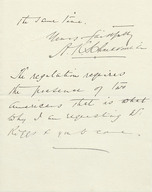 the same time.
Yours faithfully
A.
The regulation requires
the presence of two
Americans that is what
why I am requesting W.
Riggs &